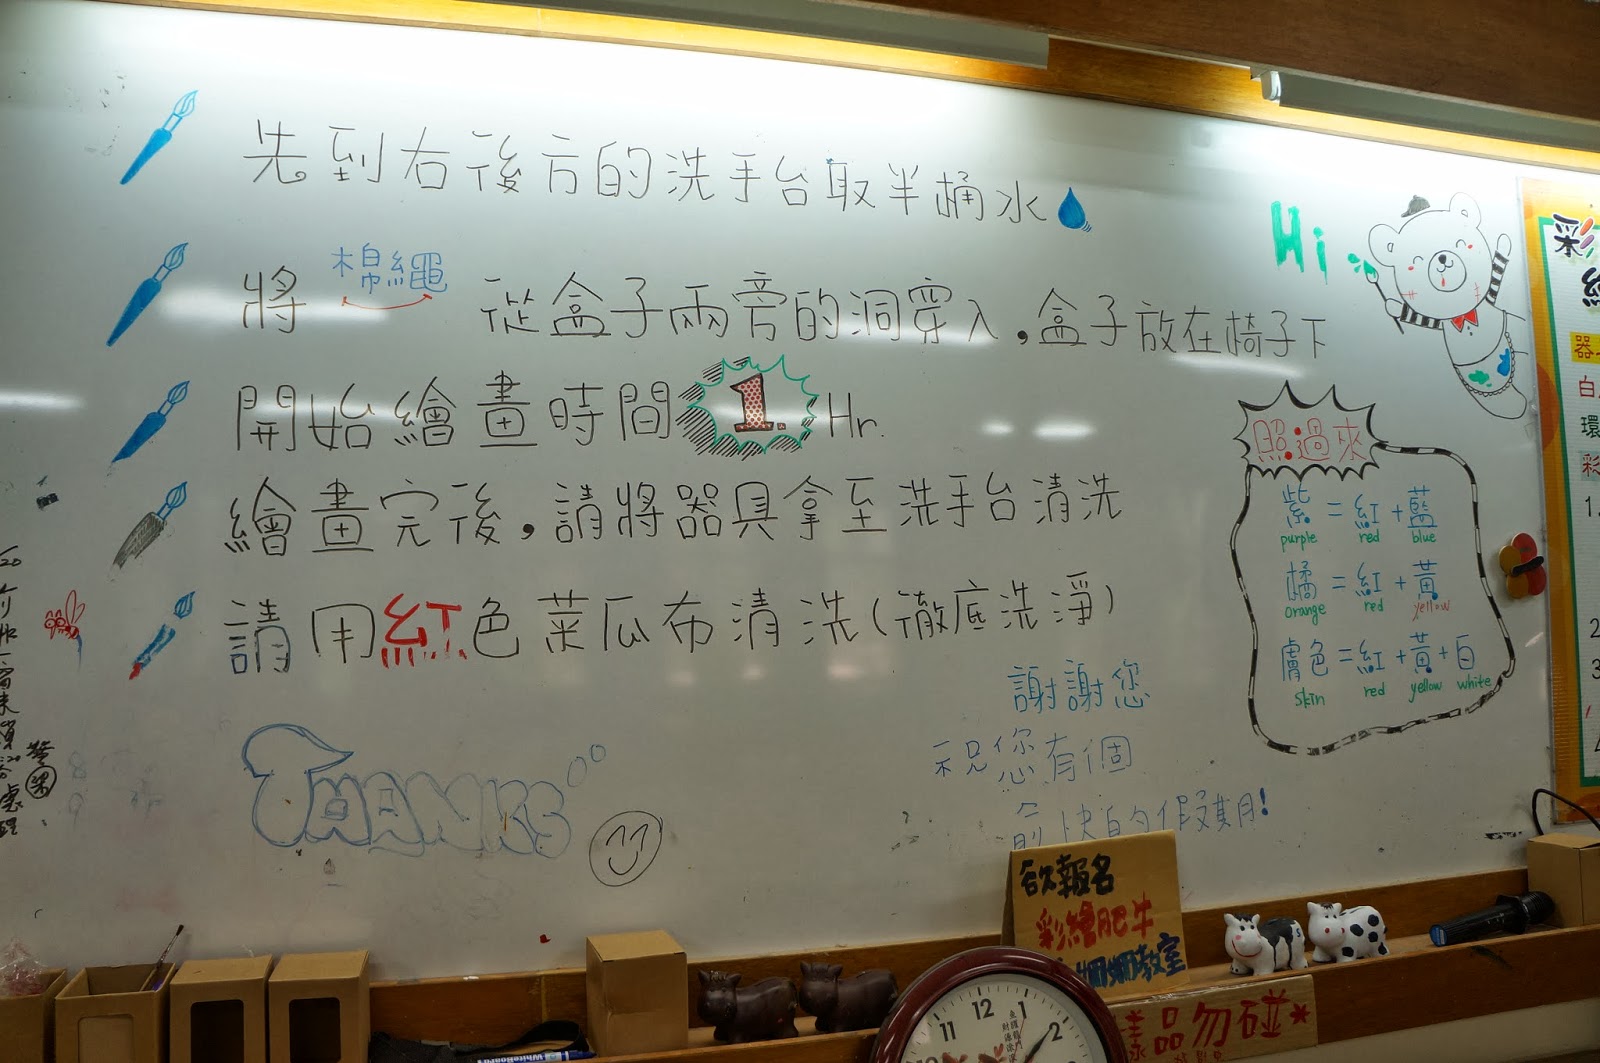 先到右後方的洗手台取半桶水
將 棉繩 從盒子兩旁的洞穿入,盒子放在椅子下
開始繪畫時間 1. Hr.
繪畫完後,請將器具拿至洗手台清洗
請用紅色菜瓜布清洗(徹底洗淨)
謝謝您
祝您有個
愉快的假期!
THANKS
Hi
照過來
紫=紅+藍
purple red blue
橘=紅+黃
orange red yellow
膚色=紅+黃+白
skin red yellow white
彩
器
白
環
彩
1.
2
3
欲報名
彩繪肥牛
教室
樣品勿碰*
11 12 1 2
WhiteBoard